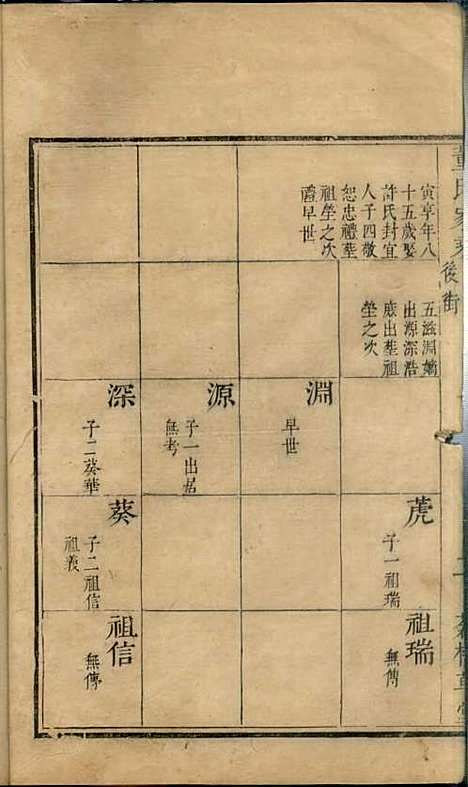 後街
寅享年八
十五歲娶
許氏封宜
人子四敬
恕忠禮葬
祖塋之次
禮早世
五滋淵嫡
出源深浩
庶出葬祖
塋之次
淵
早世
源
子一出居
無考
深
子二葵華
虎
子一祖瑞
葵
子二祖信
祖義
祖瑞
無傳
祖信
無傳